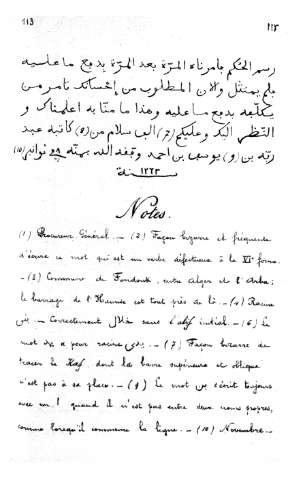 113 ١١٣
رسم الحكم بامرناه المرّة بعد المرّة بدفع ما عليه
فلم يمتثل ولان المطلوب من احسانك تامر من
يكلّفه بدفع ما عليه وهذا ما منّا به اعلمناك و
النظر اليك وعليكم (7) السلام من (8) كاتبه عبد
ربّه بن (9) يوسف بن احمد وفقه الله بمنّه نوانبر (10)
سنة ١٣٢٣
Notes.
(1) Procureur Général. — (2) Façon bizarre et fréquente
d'écrire ce mot qui est un verbe défectueux à la VIe forme.
— (3) Commune de Fondouk, entre Alger et l'Arba;
le barrage de l'Hamiz est tout près de là. — (4) Racine
— Correctement خلال sans l'alif initial. — (6) Le
mot a pour racine — (7) Façon bizarre de
tracer le Kaf dont la barre supérieure et oblique
n'est pas à sa place. — (9) Le mot بن s'écrit toujours
avec un ا quand il n'est pas entre deux noms propres,
comme lorsqu'il commence la ligne. — (10) Novembre. —